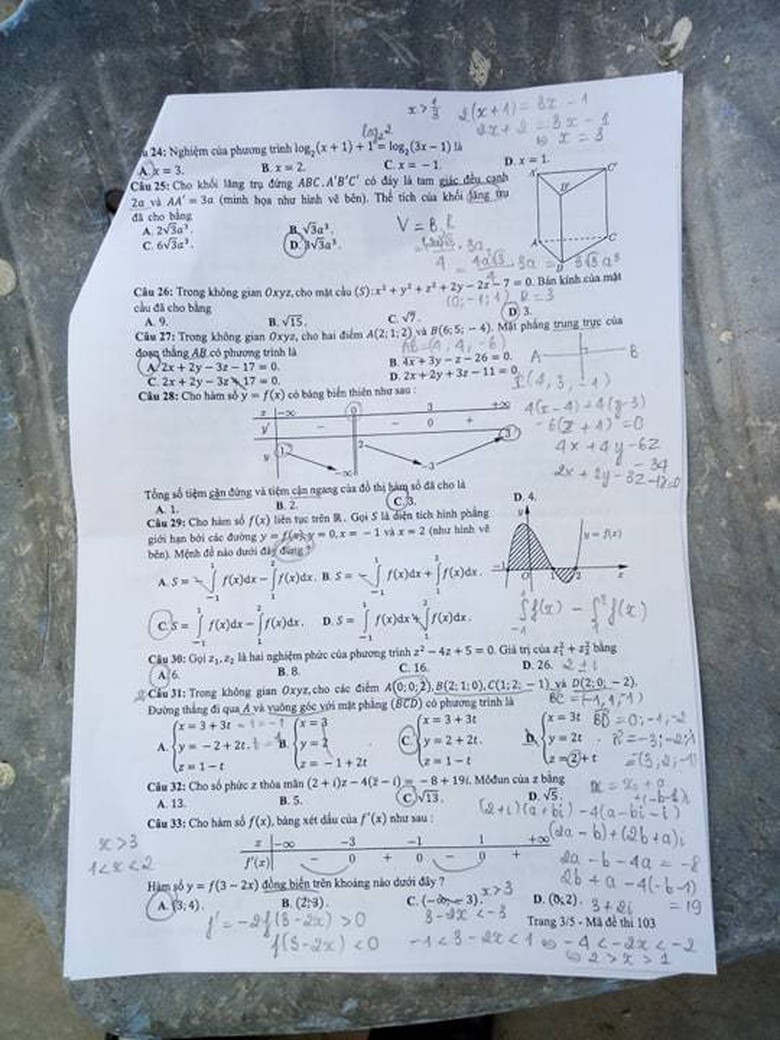 x > 1/3 2(x+1) = 3x - 1
2x + 2 = 3x - 1
log₂2 ⇔ x = 3
24: Nghiệm của phương trình log₂(x + 1) + 1 = log₂(3x − 1) là
A. x = 3. B. x = 2. C. x = −1. D. x = 1.
Câu 25: Cho khối lăng trụ đứng ABC.A'B'C' có đáy là tam giác đều cạnh
2a và AA' = 3a (minh họa như hình vẽ bên). Thể tích của khối lăng trụ
đã cho bằng
A. 2√3a³. B. √3a³. V = B.h
C. 6√3a³. D. 3√3a³.
A' C'
B'
A C
B
4 = 4a²√3/4 . 3a = 3√3a³
Câu 26: Trong không gian Oxyz, cho mặt cầu (S): x² + y² + z² + 2y − 2z − 7 = 0. Bán kính của mặt
cầu đã cho bằng (0; -1; 1) R = 3
A. 9. B. √15. C. √7. D. 3.
Câu 27: Trong không gian Oxyz, cho hai điểm A(2; 1; 2) và B(6; 5; −4). Mặt phẳng trung trực của
đoạn thẳng AB có phương trình là AB = (4, 4, -6)
A. 2x + 2y − 3z − 17 = 0. B. 4x + 3y − z − 26 = 0. A B
C. 2x + 2y − 3z + 17 = 0. D. 2x + 2y + 3z − 11 = 0. I(4, 3, -1)
Câu 28: Cho hàm số y = f(x) có bảng biến thiên như sau :
x −∞ 0 3 +∞
y' − − 0 +
y 1 −∞ 2 −3 3
4(x-4) + 4(y-3)
-6(z+1) = 0
4x + 4y - 6z
- 34
2x + 2y - 3z - 17 = 0
Tổng số tiệm cận đứng và tiệm cận ngang của đồ thị hàm số đã cho là
A. 1. B. 2. C. 3. D. 4.
Câu 29: Cho hàm số f(x) liên tục trên ℝ. Gọi S là diện tích hình phẳng
giới hạn bởi các đường y = f(x), y = 0, x = −1 và x = 2 (như hình vẽ
bên). Mệnh đề nào dưới đây đúng ?
y
y = f(x)
−1 O 1 2 x
A. S = −∫₋₁¹ f(x)dx − ∫₁² f(x)dx. B. S = −∫₋₁¹ f(x)dx + ∫₁² f(x)dx.
C. S = ∫₋₁¹ f(x)dx − ∫₁² f(x)dx. D. S = ∫₋₁¹ f(x)dx + ∫₁² f(x)dx.
∫₋₁¹ f(x) - ∫₁² f(x)
Câu 30: Gọi z₁, z₂ là hai nghiệm phức của phương trình z² − 4z + 5 = 0. Giá trị của z₁² + z₂² bằng
A. 6. B. 8. C. 16. D. 26. 2 ± i
Câu 31: Trong không gian Oxyz, cho các điểm A(0; 0; 2), B(2; 1; 0), C(1; 2; −1) và D(2; 0; −2).
Đường thẳng đi qua A và vuông góc với mặt phẳng (BCD) có phương trình là BC = (-1, 1, -1)
A. {x = 3 + 3t; y = −2 + 2t; z = 1 − t. B. {x = 3; y = 2; z = −1 + 2t C. {x = 3 + 3t; y = 2 + 2t; z = 1 − t D. {x = 3t; y = 2t; z = 2 + t
BD = 0; -1; -2
= -3; -2; 1
= (3, 2, -1)
Câu 32: Cho số phức z thỏa mãn (2 + i)z − 4(z̄ − i) = −8 + 19i. Môđun của z bằng
A. 13. B. 5. C. √13. D. √5.
(2+i)(a+bi) - 4(a-bi-i)
Câu 33: Cho hàm số f(x), bảng xét dấu của f'(x) như sau :
x −∞ −3 −1 1 +∞
f'(x) − 0 + 0 − 0 +
x > 3
1 < x < 2
(2a - b) + (2b + a)i
2a - b - 4a = -8
2b + a - 4(-b-1)
= 19
3 + 2i
Hàm số y = f(3 − 2x) đồng biến trên khoảng nào dưới đây ?
A. (3; 4). B. (2; 3). C. (−∞; −3). D. (0; 2).
x > 3
f' = -2f(3-2x) > 0 3 - 2x < -3 Trang 3/5 - Mã đề thi 103
f(3-2x) < 0 -1 < 3 - 2x < 1 ⇔ -4 < -2x < -2
⇔ 2 > x > 1